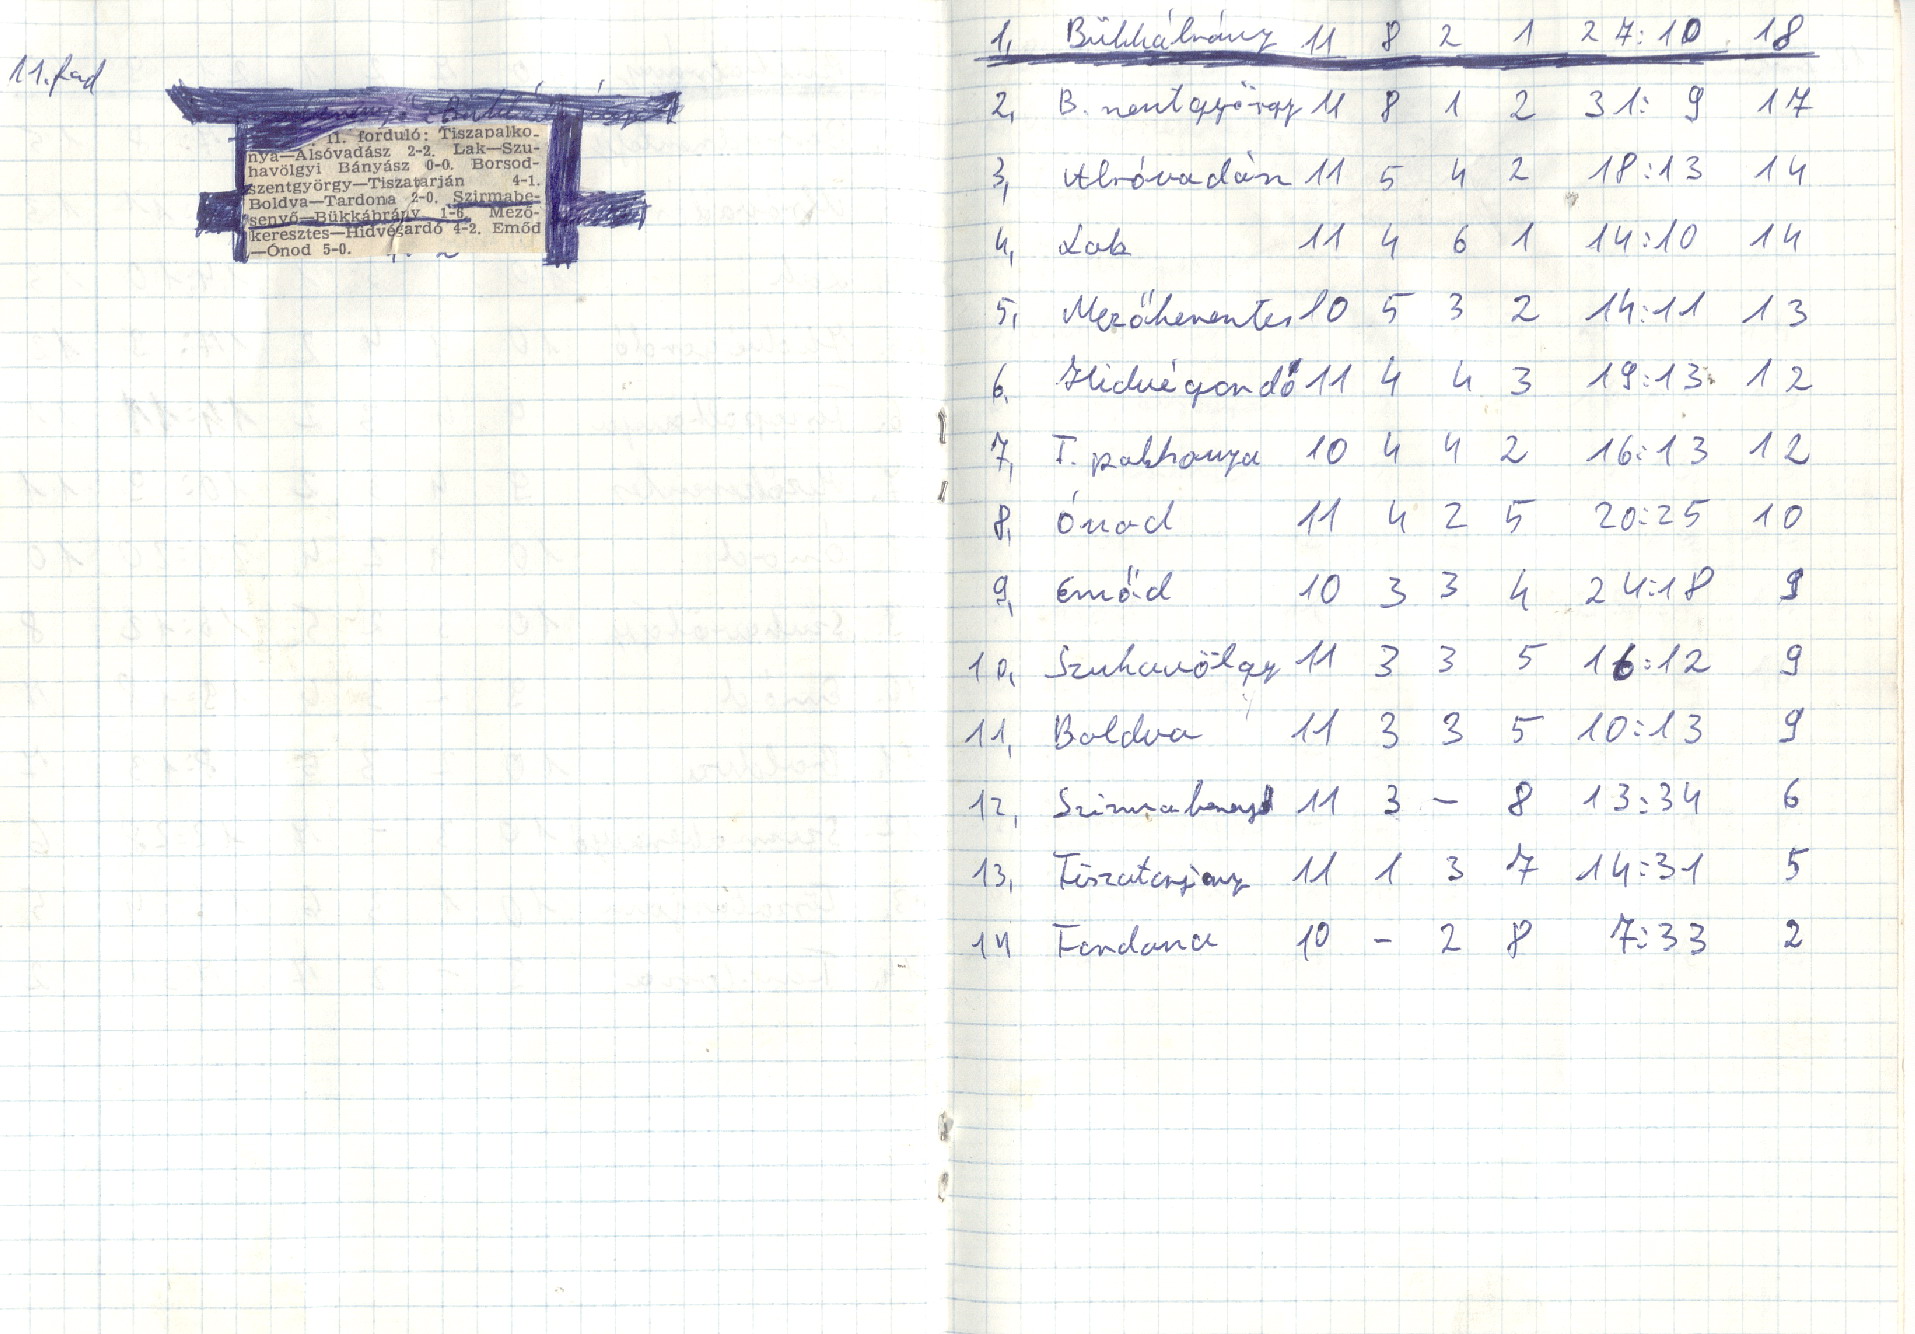 11. ford
11. forduló: Tiszapalko-
nya—Alsóvadász 2-2. Lak—Szu-
havölgyi Bányász 0-0. Borsod-
szentgyörgy—Tiszatarján 4-1.
Boldva—Tardona 2-0. Szirmabe-
senyő—Bükkábrány 1-6. Mező-
keresztes—Hidvégardó 4-2. Emőd
—Ónod 5-0.
1, Bükkábrány 11 8 2 1 27:10 18
2, B. szentgyörgy 11 8 1 2 31: 9 17
3, Alsóvadász 11 5 4 2 18:13 14
4, Lak 11 4 6 1 14:10 14
5, Mezőkeresztes 10 5 3 2 14:11 13
6, Hidvégardó 11 4 4 3 19:13 12
7, T. palkonya 10 4 4 2 16:13 12
8, Ónod 11 4 2 5 20:25 10
9, Emőd 10 3 3 4 24:18 9
10, Szuhavölgy 11 3 3 5 16:12 9
11, Boldva 11 3 3 5 10:13 9
12, Szirmabesenyő 11 3 – 8 13:34 6
13, Tiszatarjány 11 1 3 7 14:31 5
14 Tardona 10 – 2 8 7:33 2